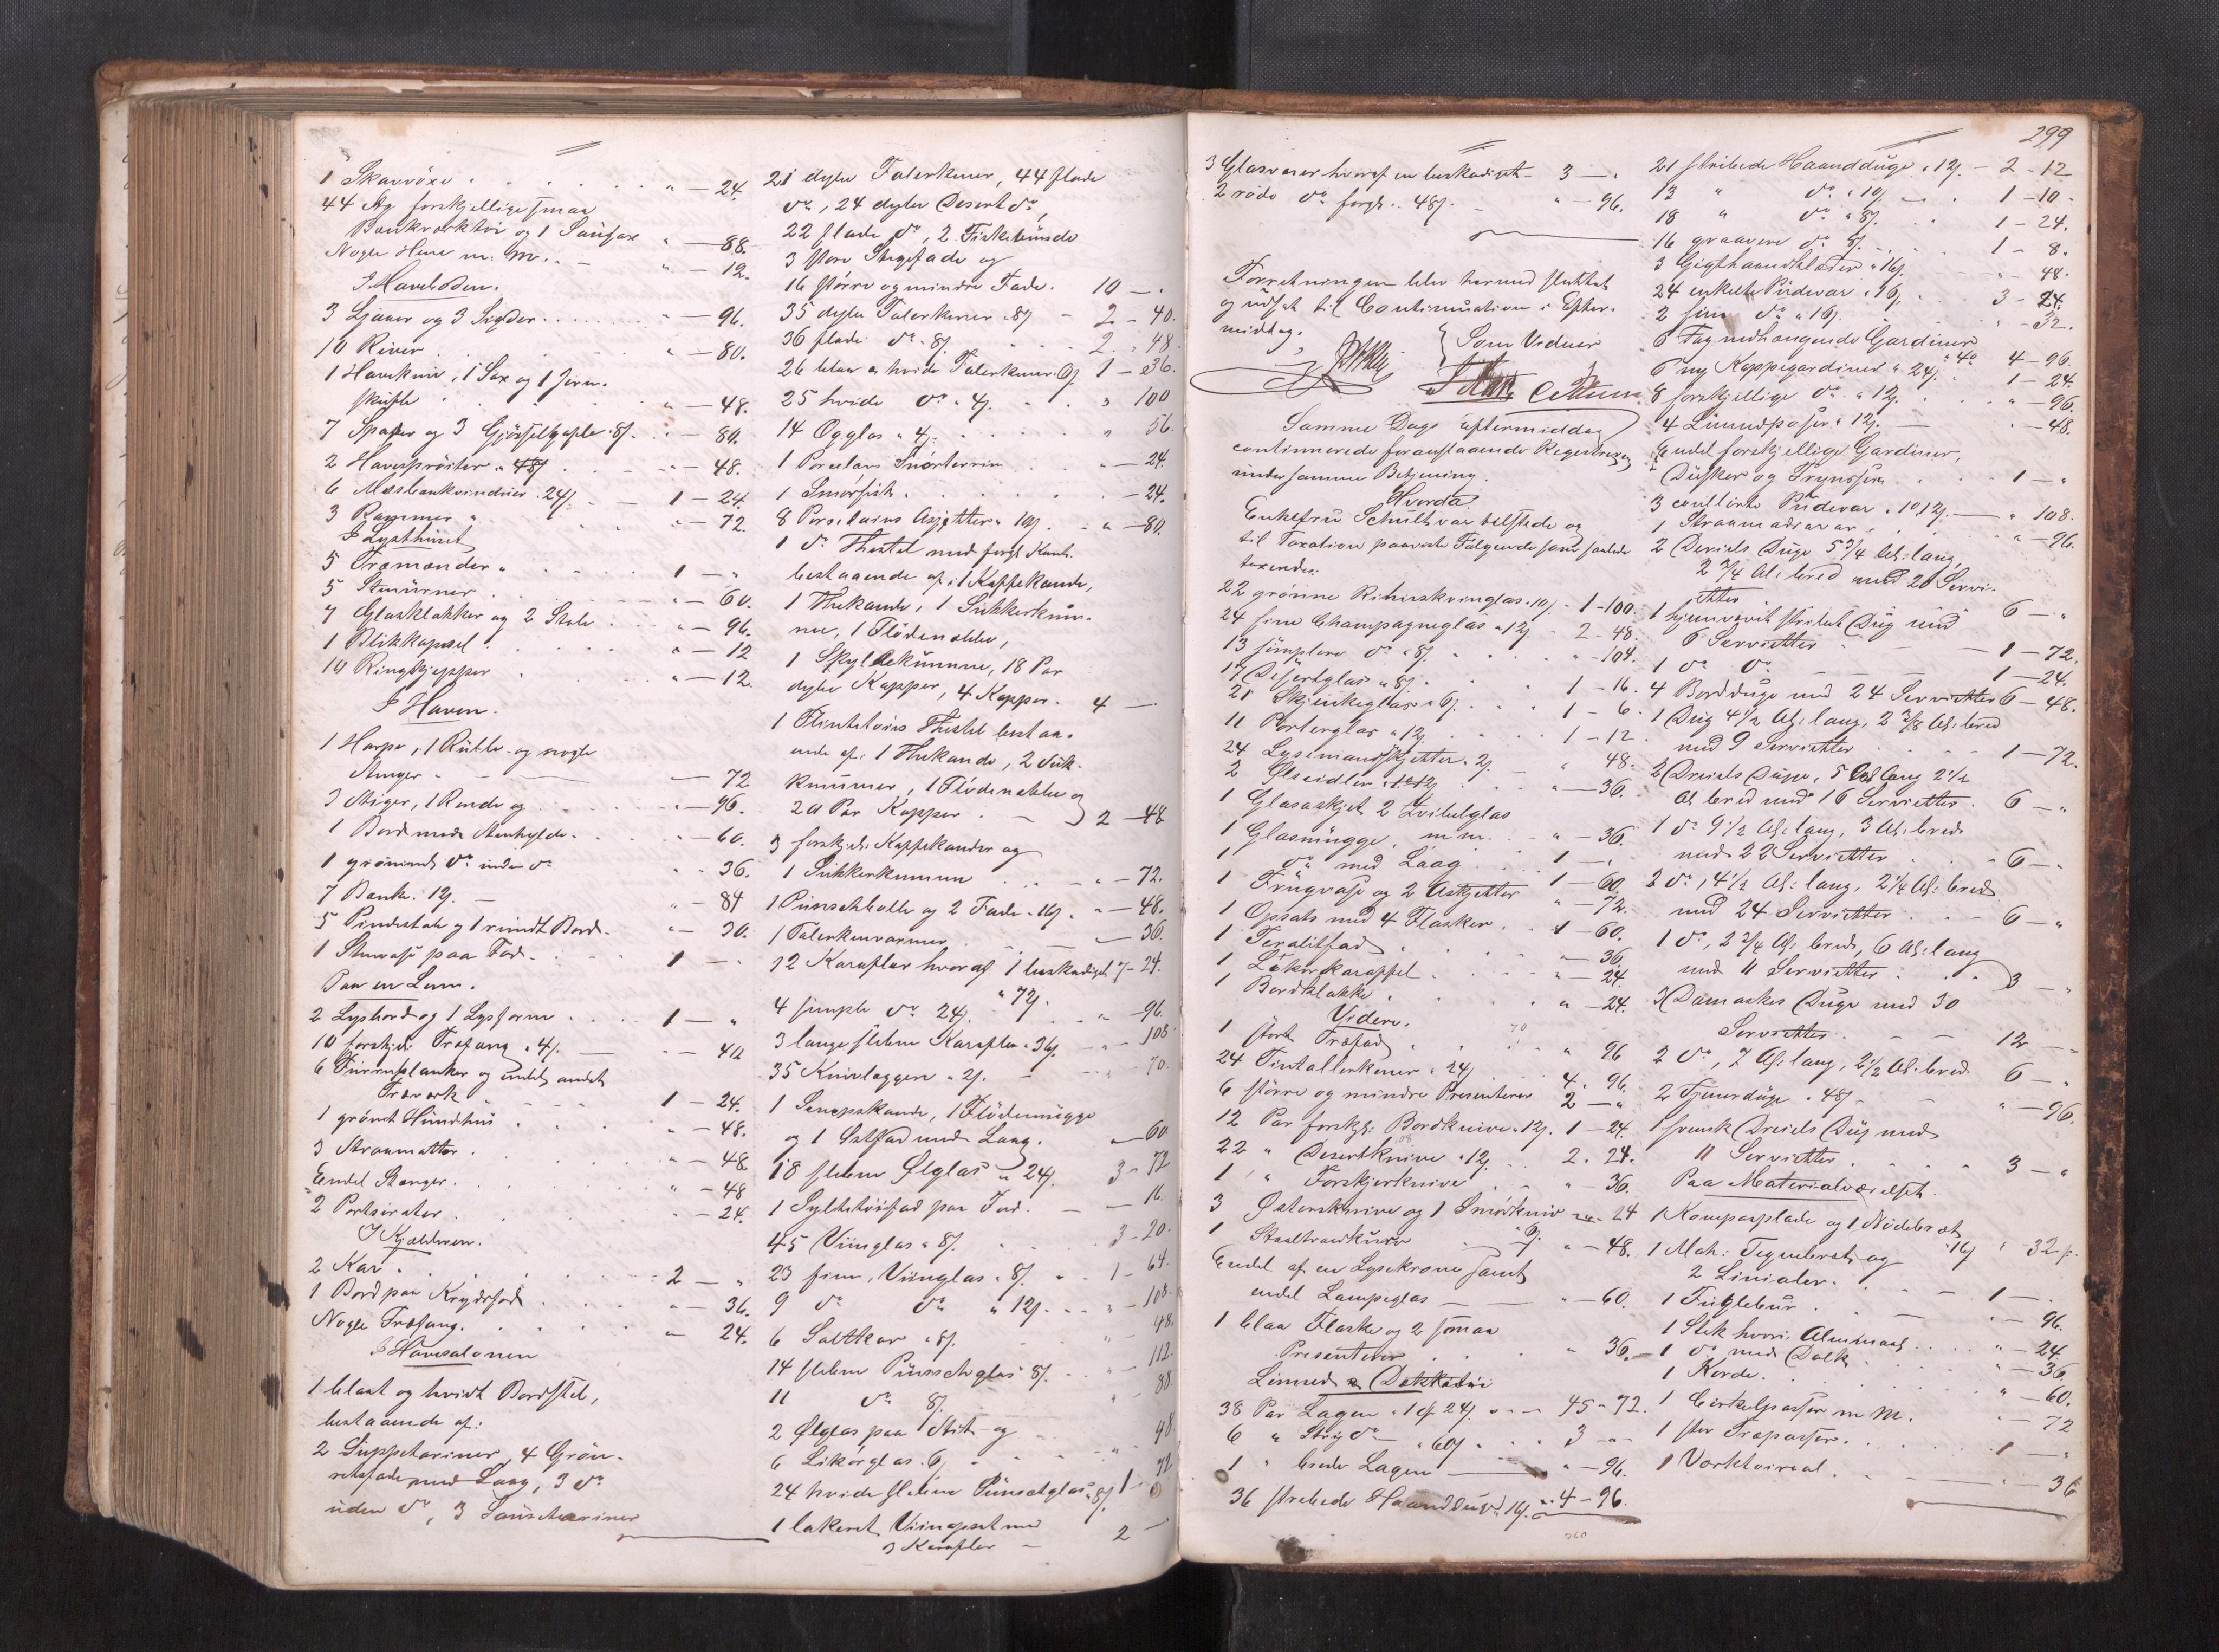 1 Skarvöxe " — 24.
44 Stkr forskjellige smaa
Bænkværktöi og 1 Saugsax " — 88.
Nogle Hene m. M. " — 12.
I Haveboden.
3 Ljaaer og 3 Sigder " — 96.
10 River " — 80.
1 Havekniv, 1 Sax og 1 Jern-
skuffe " — 48.
7 Spader og 3 Gjödselgafle 8ſ. " — 80.
2 Havespröiter " 48ſ " — 48.
6 24ſ 1 — 24.
3 Rammer " " — 72.
I Lysthuset
5 Træmænder " 1 — "
5 Stenurner " — 60.
7 Glasklokker og 2 Stole " — 96.
1 Blikkapsel " — 12
10 Ringkjepper " — 12.
I Haven.
1 Harpe, 1 Rulle og nogle
Stænger " — 72
3 Stiger, 1 Rende og " — 96.
1 Bord med Stenhylde " — 60.
1 grönmalt do uden do " 36.
7 Bænke. 12. " — 84
5 Pindestole og 1 rundt Bord. " — 30.
1 Stenvase paa Fod. 1 — "
Paa en Lem.
2 Lysbord og 1 Lysform 1 — "
10 forskjell. Træfang " 4ſ. " — 40
6 Furuplanker og endel andet
Træværk 1 — 24.
1 grönt Hundhuus " — 48.
3 Straamatter " — 48.
Endel Stænger " — 48
2 Portsirater " — 24.
I Kjælderen.
2 Kar 2 — "
1 Bord paa Krydsfod " — 36.
Nogle Træfang. " 24.
I Havesalonen
1 blaat og hvidt Bordstel,
bestaaende af:
2 Suppeteriner, 4 Grön-
retsfade med Laag, 3 do
uden do, 3 Sauseteriner
21 dybe Talerkener, 44 flade
do, 24 dybe Desert do,
22 flade do, 2 Fiskebunde
3 store Stegefade og
16 større og mindre Fade. 10 — "
35 dybe Talerkener " 8ſ 2 — 40.
36 flade do " 8ſ. 2 " 48
26 blaa & hvide Talerkener 6ſ 1 — 36.
25 hvide do " 4ſ. " 100
14 Ægglas " 4ſ. " 56.
1 Porcelæns Smörterrin " — 24.
1 Smörfisk " — 24.
8 Porcelains Asjetter " 10ſ. " — 80.
1 do Thestel med forgt Kant.
bestaaende af: 1 Kaffekande,
1 Thekande, 1 Sukkerkum-
me, 1 Flödemokke,
1 Skyllekumme, 18 Par
dybe Kopper, 4 Kopper. 4 — "
1 Flintetøis Thestel bestaa-
ende af: 1 Thekande, 2 Suk-
kkummer, 1 Flödemokke og
20 Par Kopper 2 — 48
3 forskjell. Kaffekander og
1 Sukkerkumme " — 72.
1 Punschbolle og 2 Fade " 16ſ. " — 48.
1 Talerkenvarmer " — 36.
12 Karafler hvoraf 1 beskadiget 7 — 24.
" 72ſ.
4 simple do 24ſ. " — 96.
3 lange slebne Karafler " 36ſ. " — 108
35 Knivleggere " 2ſ. " 70.
1 Senepskande, 1 Flödemugge
og 1 Saltfad med Laag. " — 60
18 slebne Ølglas " 24ſ. 3 — 72
1 Syltetöisfad paa Fod. — 16.
45 Viinglas " 8ſ. 3 — 20.
23 fine Viinglas " 8ſ. 1 — 64.
9 do do " 12ſ. " — 108.
6 Saltkar " 8ſ. " 48.
14 slebne Punschglas 8ſ. " — 112
11 do 8ſ. " 88.
2 Ølglas paa Stet og
6 Likörglas 6ſ " 48
24 hvide slebne Punschglas " 8ſ.
1 lakeret Viinopsats med
3 Karafler — 2 —
299
3 Glasvaser hvoraf en beskadiget 3 — "
2 röde do forgt. " 48ſ. " — 96.
Forretningen blev hermed sluttet
og udsat til Continuation i Efter-
middag.
Som Vidner
Samme Dags Eftermiddag
continuerede foranstaaende Registrering
under samme Betjening.
Hvorda
Enkefru Schultz var tilstede og
til Taxation paaviste Følgende som saaledes
taxeredes:
22 grönne Rhinskvinglas " 10ſ. 1 — 100.
24 fine Champagneglas " 12ſ 2 — 48.
13 simplere do " 8ſ. " — 104.
17 Desertglas " 8ſ. 1 — 16.
21 Skjenkeglas " 6ſ. 1 — 6.
11 Porterglas " 12ſ. 1 — 12
24 Lysemandskjetter " 2ſ. " 48.
2 Ølseidler " — 36.
1 Glasaskjet 2 Zvibelglas
1 Glasmugge, m m. " — 36.
1 do med Laag 1 — "
1 Frugvase og 2 Askjetter 1 — 60.
1 " — 72.
1 Opsats med 4 Flasker 1 — 60.
1 " 36.
1 Likörkaraffel " — 24.
1 Bordklokke " — 24.
Videre.
1 stort Træfad " 96
24 Tintallerkener " 24ſ 4 " 96.
6 större og mindre Presenterer 2 — "
12 Par forskjl. Bordknive " 12ſ. 1 — 24.
22 " Desertknive " 12ſ. 2 " 24.
1 " Forskjerknive " — 36.
3 Østersknive og 1 Smörkniv " — 24
1 Staaltraadkurv " 6ſ. " — 48.
Endel af en Lysekrone samt
endel Lampeglas " — 60.
1 blaa Flaske og 2 smaa
Presenterer " 36.
Linned & Dækketöi
38 Par Lagen " 1 sp 24ſ. 45 " 72.
6 " Strie do " 60ſ. 3 — "
1 " brede Lagen " — 96.
36 stribede Haandduge " 16ſ. 4 — 96.
21 stribede Haandduge " 12ſ. 2 — 12
13 " do " 10ſ. 1 — 10
18 " do " 8ſ. 1 — 24.
16 graavere do " 8ſ. 1 — 8.
3 Gigthaandklæder " 16ſ. " 48.
24 enkelte Pudevar " 16ſ. 3 — 24.
2 fine do " 16ſ. " — 32.
6 Fag nedhængende Gardiner
" 4o 4 — 96.
6 ny Kappegardiner " 24ſ. 1 — 24.
8 forskjellige do " 12ſ. " — 96.
4 Linnedposer " 12ſ. " — 48.
Endel forskjellige Gardiner,
Dusker og Frynser 1 — "
3 couillerte Pudevar " 10 12ſ. " 108.
1 Straamadravar " — 96.
2 Dreiels Duge 5 3/4 Al: lang,
2 3/4 Al: bred med 20 Servi-
etter 6 — "
1 hjemvævet stribet Dug med
6 Servietter 1 — 72.
1 do do 1 — 24.
4 Bordduge med 24 Servietter 6 — 48.
1 Dug 4 1/2 Al: lang, 2 3/8 Al: bred
med 9 Servietter 1 — 72.
2 Dreiels Duge, 5 Al lang 2 1/2
Al bred med 16 Servietter 6 — "
1 do 9 1/2 Al: lang, 3 Al: bred
med 22 Servietter 6 — "
2 do, 4 1/2 Al: lang, 2 1/4 Al: bred
med 24 Servietter 6 — "
1 do, 2 3/4 Al: bred, 6 Al: lang
med 11 Servietter 3 — "
3 Damaskes Duge med 30
Servietter 12 — "
2 do, 7 Al: lang, 2 1/2 Al: bred 6 — "
2 Tjenerduge " 48ſ " — 96.
1 svensk Dreiels Dug med
11 Servietter 3 — "
Paa Materialværelset.
1 Kompasplade og 1 Nodebret
" 16ſ " — 32 ſ.
1 Mah: Tegnebret og
2 Linialer. 1 — "
1 Fuglebuur " — 96.
1 Stok hvori Alenmaal " — 24
1 do med Dolk " — 36.
1 Korde " — 60.
1 Cirkelpasser m M. " — 72
1 stor Træpasser 1 — "
1 Værktoireal " 36